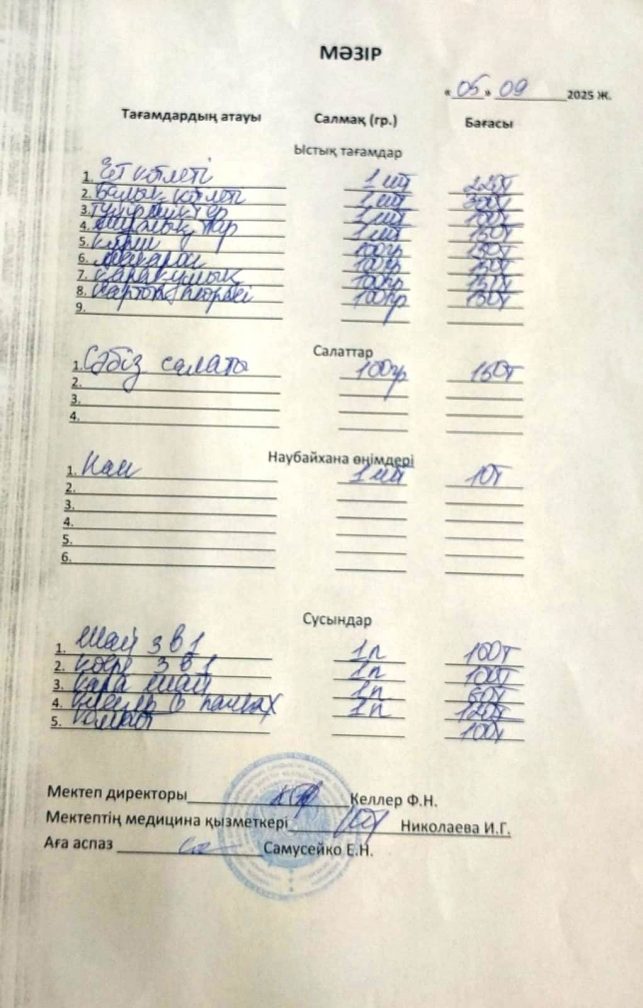 МӘЗІР
«05» 09 2025 ж.
Тағамдардың атауы Салмақ (гр.) Бағасы
Ыстық тағамдар
1. Ет котлеті 1 шт 225т
2. Балық котлеті 1 шт
3. 1 шт 100т
4. 1 шт 150т
5. күріш 100гр
6. макарон 100гр 150т
7. қарақұмық 100гр 150т
8. Картоп пюресі 100гр 150т
9.
Салаттар
1. Сәбіз салаты 100гр 150т
2.
3.
4.
Наубайхана өнімдері
1. Нан 1 шт 10т
2.
3.
4.
5.
6.
Сусындар
1. Шай 3 в 1 1п 100т
2. кофе 3 в 1 1п 100т
3. қара шай 1п
4. в пачках 1п 120т
5. компот 100т
Мектеп директоры Келлер Ф.Н.
Мектептің медицина қызметкері Николаева И.Г.
Аға аспаз Самусейко Е.Н.